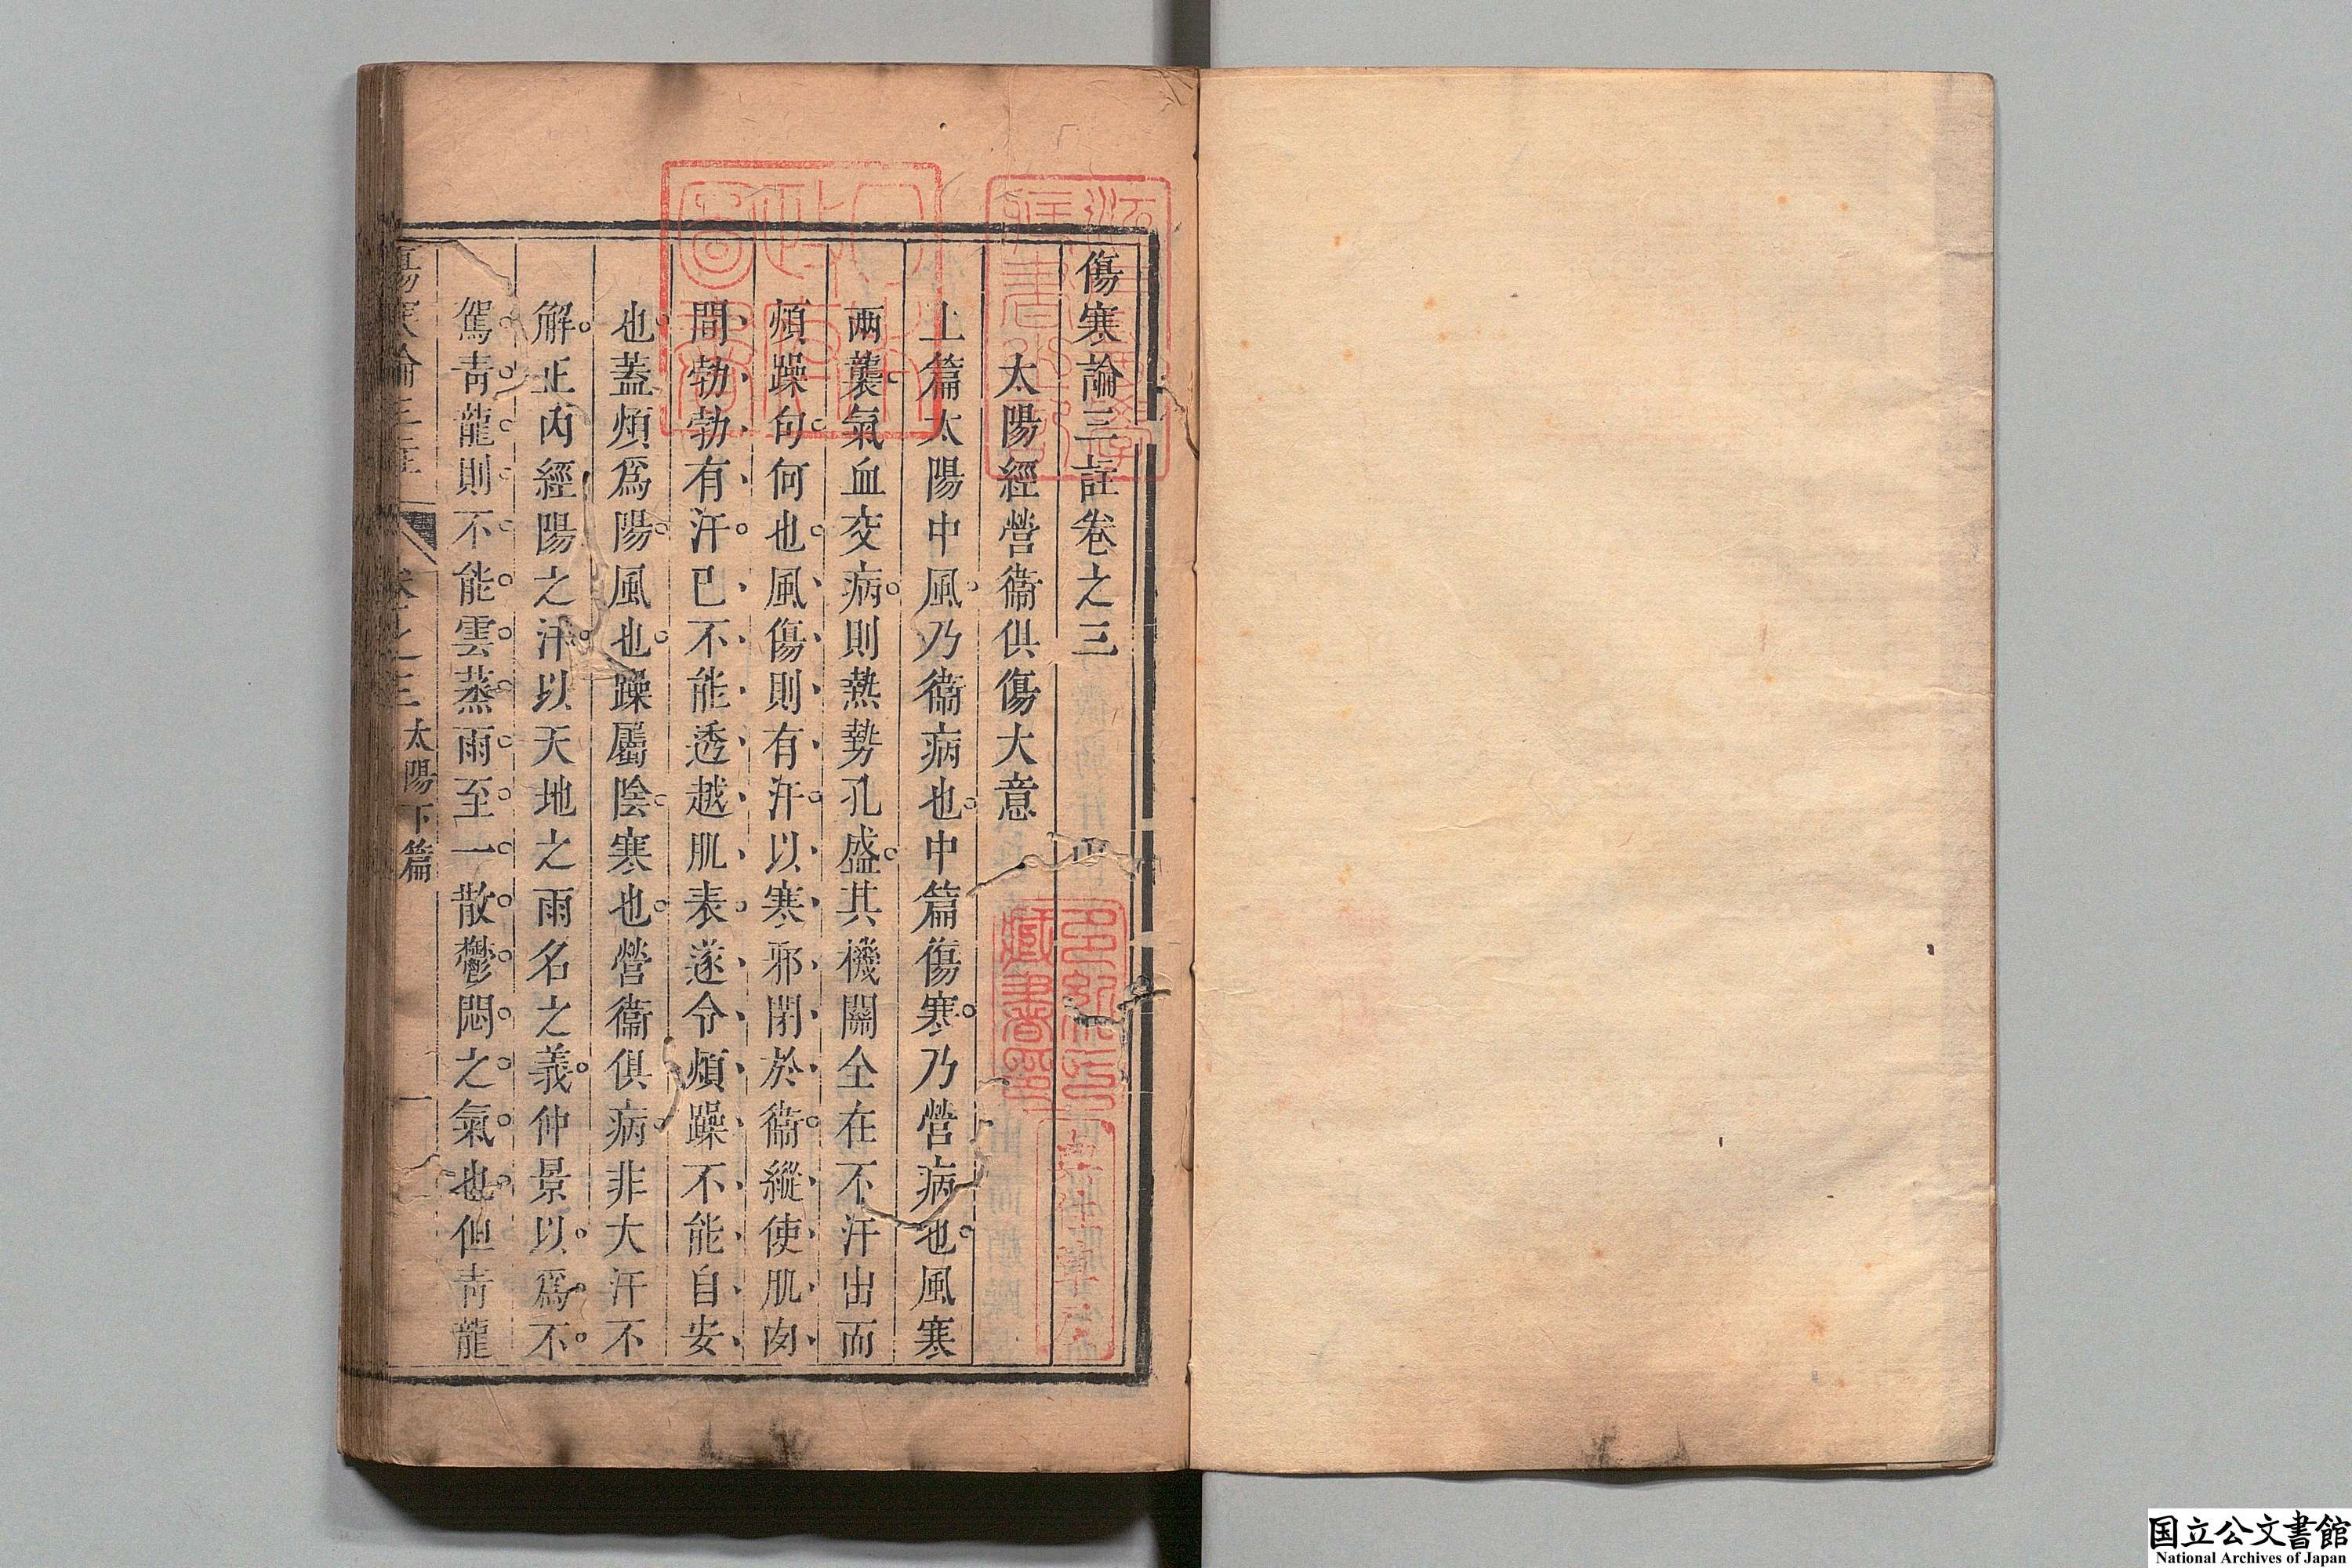 傷寒論三註卷之三
太陽經營衞俱傷大意
上篇太陽中風。乃衞病也。中篇傷寒。乃營病也。風寒
兩襲。氣血交病。則熱勢孔盛。其機關全在不汗出而
煩躁句。何也。風傷則有汗。以寒邪閉於衞。縱使肌肉
間勃勃有汗。已不能透越肌表。遂令煩躁不能自安
也。蓋煩爲陽。風也。躁屬陰。寒也。營衞俱病。非大汗不
解。正內經陽之汗。以天地之雨名之義。仲景以爲不
駕青龍則不能雲蒸雨至。一散鬱悶之氣也。但青龍
傷寒論三註 卷之三 太陽下篇 一
国立公文書館
National Archives of Japan